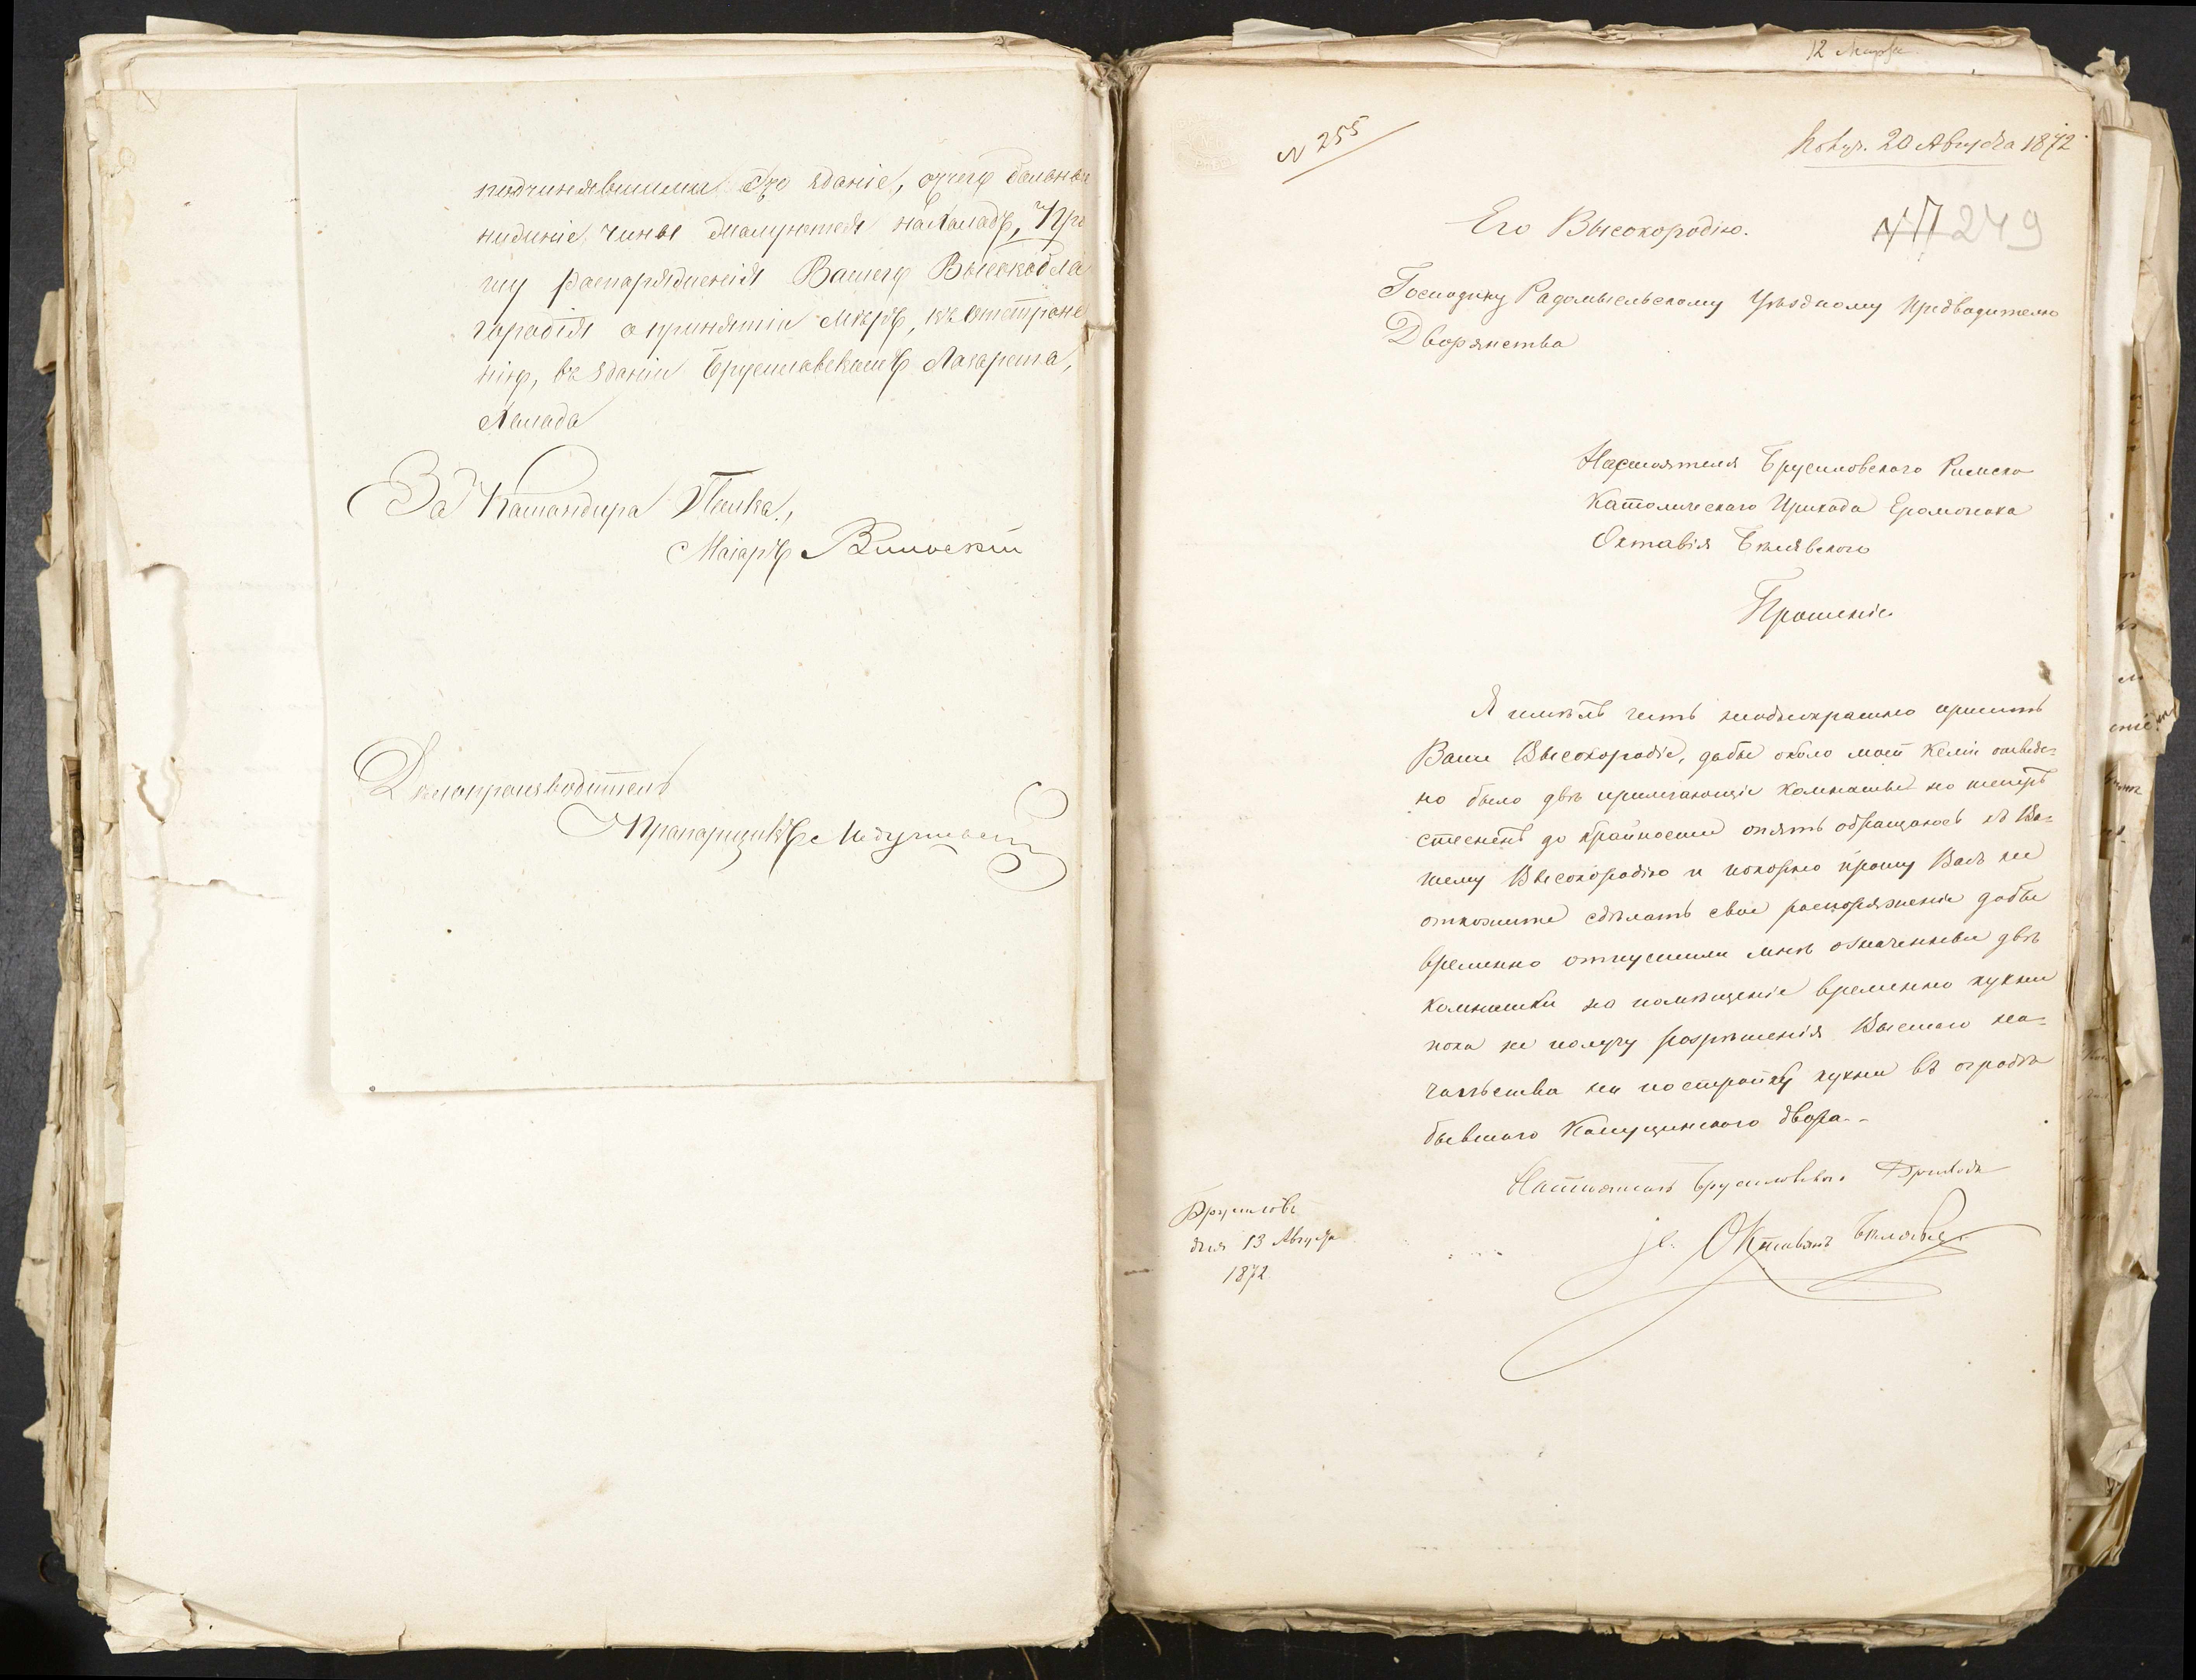 подчинявшимся это зданіе, отчего больные
нидшіе чины жалуются на холодъ, Про
шу распоряженія Вашего Высокобла
городія о принятіи мѣръ, къ отстране
нію, въ зданіи Брусиловскаго Лазарета,
холода
За Командира Полка,
Маіоръ
Дѣлопроизводитель
Прапорщикъ
12 Марта
N 255
Получ. 20 Августа 1872
249
Его Высокородію.
Господину Радомысльскому Уѣздному Предводителю
Дворянства
Настоятеля Брусиловскаго Римско
Католическаго Прихода Еромонаха
Октавія Бѣлявскаго
Прошеніе
Я имѣлъ честь неоднократно просить
Ваше Высокородіе, дабы около моей Келіи отведе=
но было двѣ прилегающіе комнаты но теперь
стесненъ до крайности опять обращаюсь къ Ва=
шему Высокородію и покорно прошу Васъ не
откажите сдѣлать свое распоряженіе дабы
временно отпустили мнѣ означенныи двѣ
комнатки на помѣщеніе временно кухни
пока не получу разрѣшенія Высшаго на=
чальства на постройку кухни въ оградѣ
бывшаго Капуцинскаго двора.-
Настоятель Брусиловскаго Прихода
Іе. Октавянъ Бѣлявс
Брусиловъ
дня 13 Августа
1872